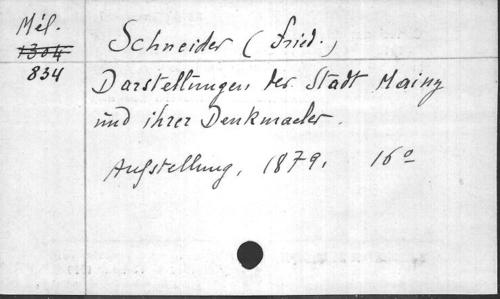 Mél.
1304
834
Schneider (Fried.)
Darstellungen der Stadt Mainz
und ihrer Denkmaeler.
Aufstellung, 1879. 16°